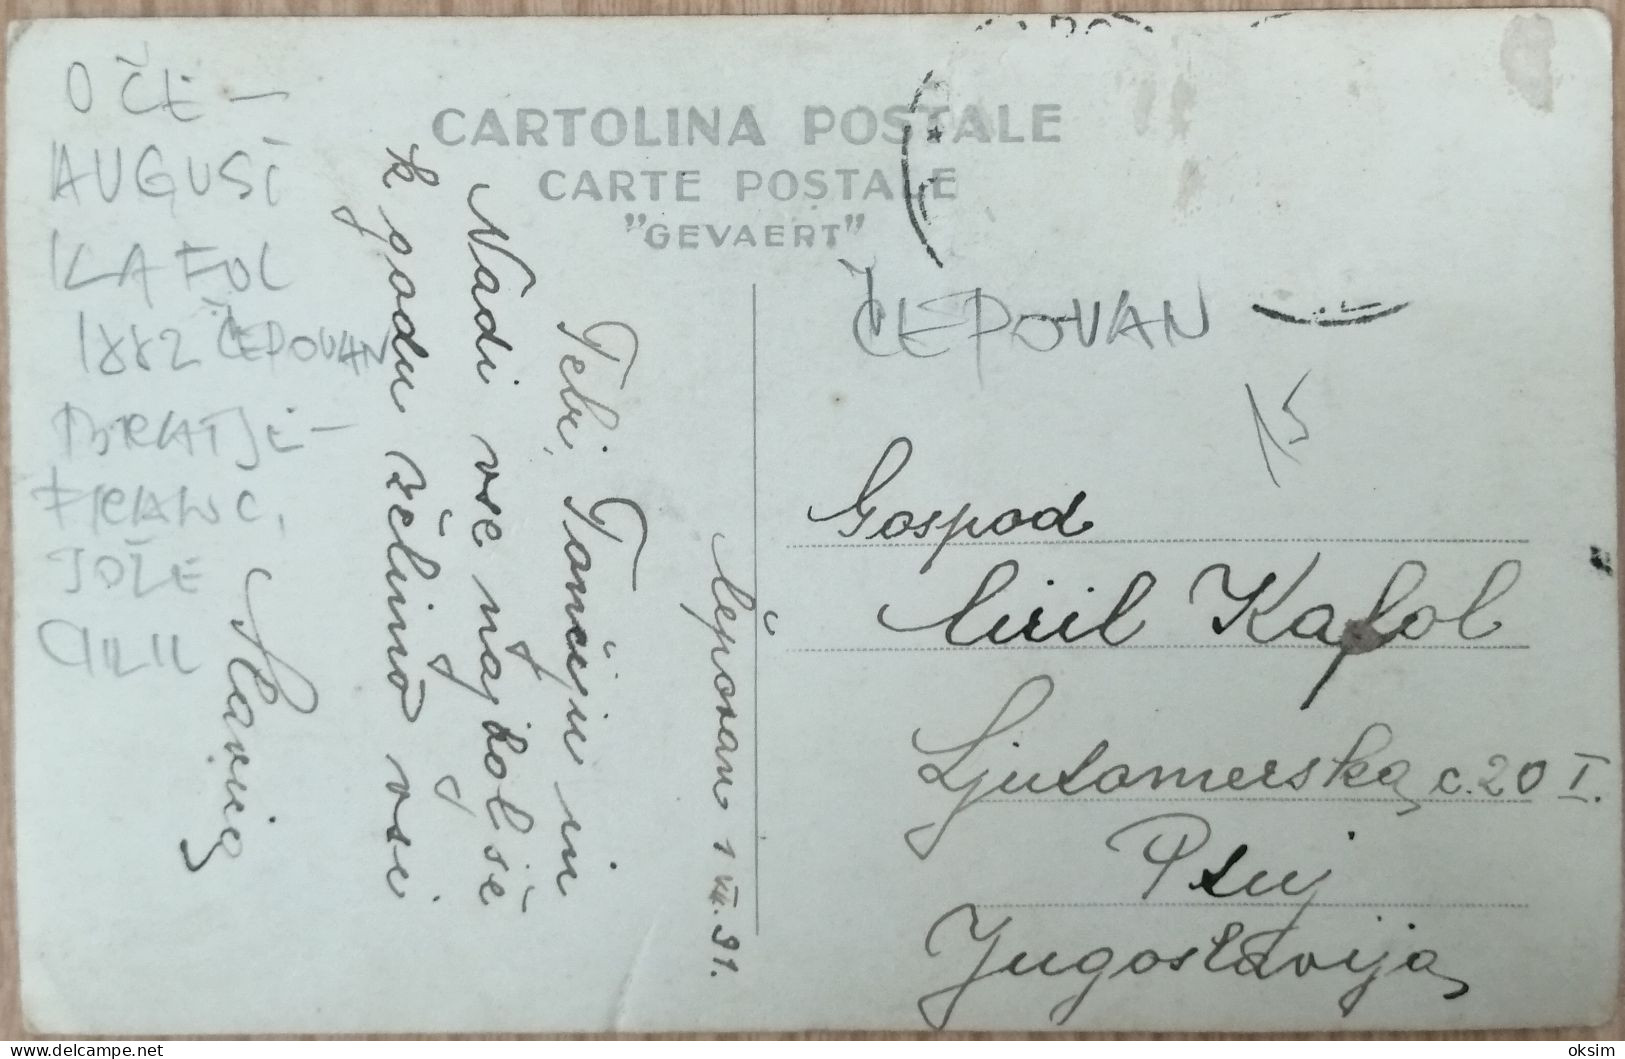 OČE -
AUGUST
KAFOL
1882 ČEPOVAN
BRATJE -
FRANC,
JOŽE
CIRIL
CARTOLINA POSTALE
CARTE POSTALE
"GEVAERT"
Čepovan 1 VII. 31.
Tebi, Tončiju in
Nadi vse najbolše
k godu želimo vsi
Slavica
ČEPOVAN
15
Gospod
Ciril Kafol
Ljutomerska c. 20 I.
Ptuj
Jugoslavija
oksim